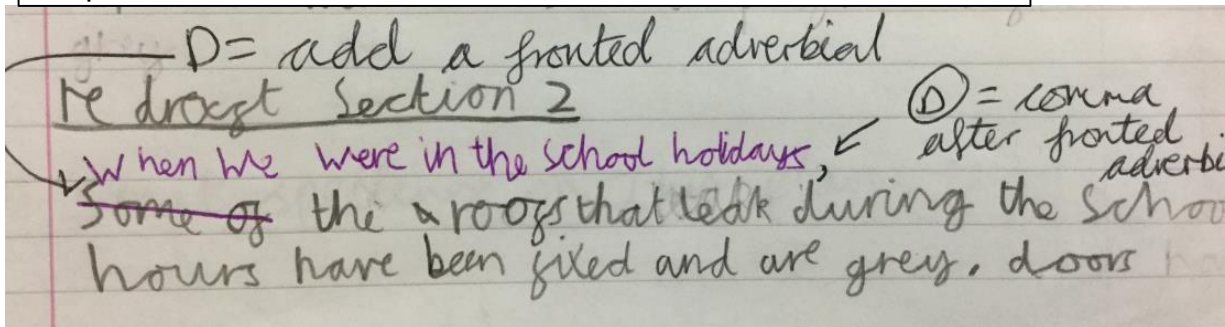 D= add a fronted adverbial
re draogt Section 2
D = comma
after fronted
adverbi
When we were in the school holidays,
Some of the roofs that leak during the schoo
hours have been fixed and are grey. doors